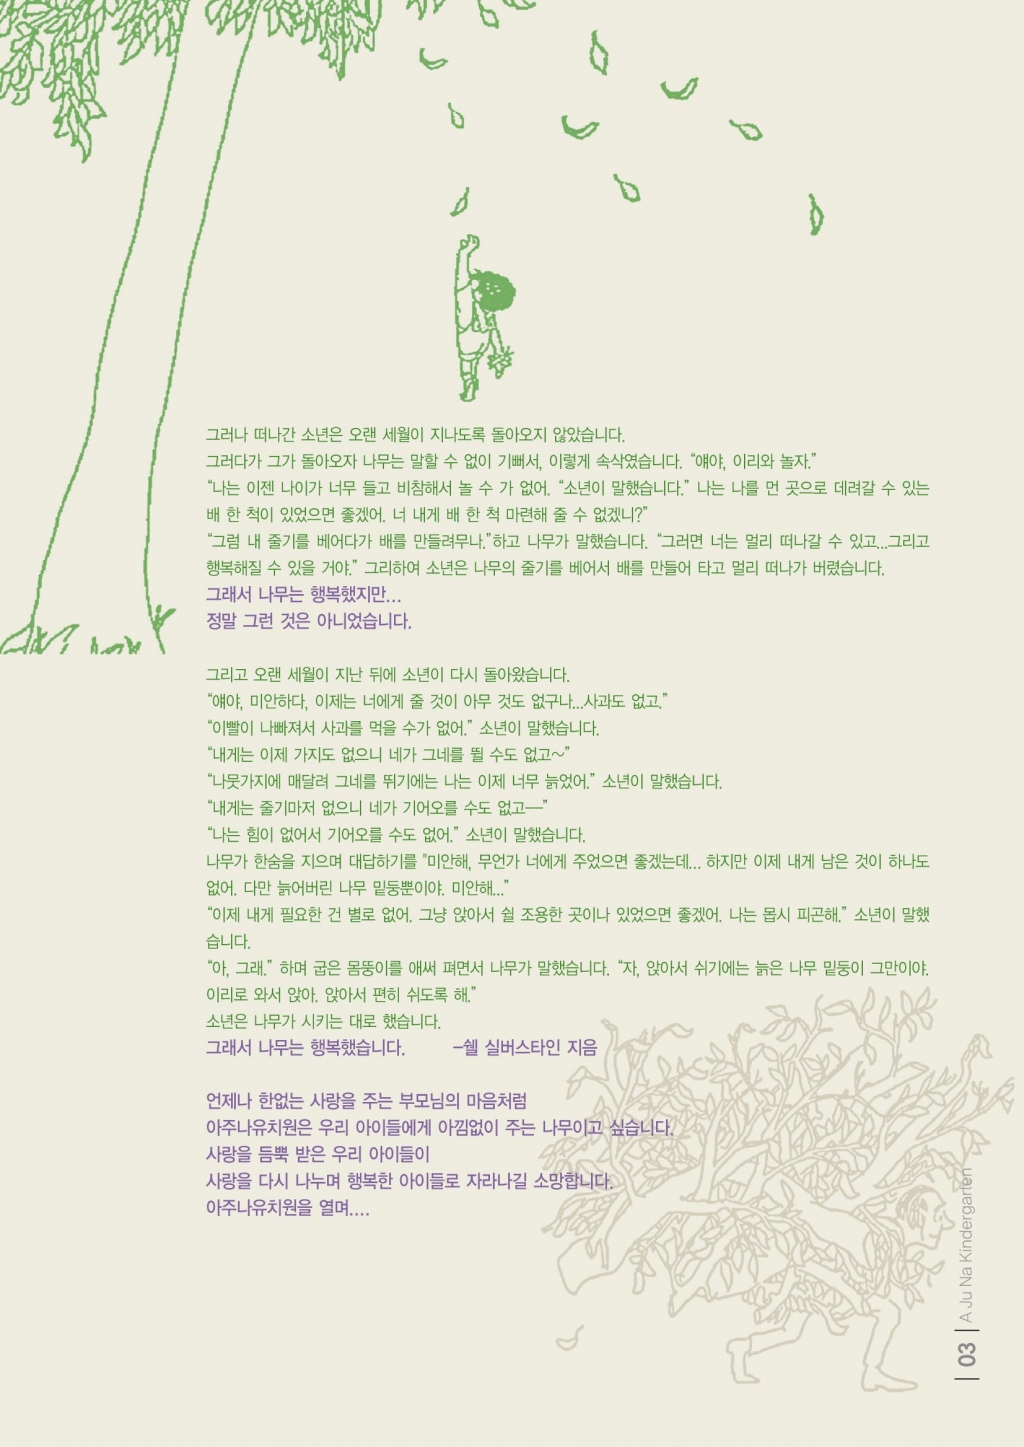 그러나 떠나간 소년은 오랜 세월이 지나도록 돌아오지 않았습니다.
그러다가 그가 돌아오자 나무는 말할 수 없이 기뻐서, 이렇게 속삭였습니다. “얘야, 이리와 놀자.”
“나는 이젠 나이가 너무 들고 비참해서 놀 수 가 없어. “소년이 말했습니다.” 나는 나를 먼 곳으로 데려갈 수 있는
배 한 척이 있었으면 좋겠어. 너 내게 배 한 척 마련해 줄 수 없겠니?”
“그럼 내 줄기를 베어다가 배를 만들려무나.”하고 나무가 말했습니다. “그러면 너는 멀리 떠나갈 수 있고...그리고
행복해질 수 있을 거야.” 그리하여 소년은 나무의 줄기를 베어서 배를 만들어 타고 멀리 떠나가 버렸습니다.
그래서 나무는 행복했지만...
정말 그런 것은 아니었습니다.
그리고 오랜 세월이 지난 뒤에 소년이 다시 돌아왔습니다.
“얘야, 미안하다, 이제는 너에게 줄 것이 아무 것도 없구나...사과도 없고.”
“이빨이 나빠져서 사과를 먹을 수가 없어.” 소년이 말했습니다.
“내게는 이제 가지도 없으니 네가 그네를 뛸 수도 없고~”
“나뭇가지에 매달려 그네를 뛰기에는 나는 이제 너무 늙었어.” 소년이 말했습니다.
“내게는 줄기마저 없으니 네가 기어오를 수도 없고—”
“나는 힘이 없어서 기어오를 수도 없어.” 소년이 말했습니다.
나무가 한숨을 지으며 대답하기를 "미안해, 무언가 너에게 주었으면 좋겠는데... 하지만 이제 내게 남은 것이 하나도
없어. 다만 늙어버린 나무 밑둥뿐이야. 미안해...”
“이제 내게 필요한 건 별로 없어. 그냥 앉아서 쉴 조용한 곳이나 있었으면 좋겠어. 나는 몹시 피곤해.” 소년이 말했
습니다.
“아, 그래.” 하며 굽은 몸뚱이를 애써 펴면서 나무가 말했습니다. “자, 앉아서 쉬기에는 늙은 나무 밑둥이 그만이야.
이리로 와서 앉아. 앉아서 편히 쉬도록 해.”
소년은 나무가 시키는 대로 했습니다.
그래서 나무는 행복했습니다. -쉘 실버스타인 지음
언제나 한없는 사랑을 주는 부모님의 마음처럼
아주나유치원은 우리 아이들에게 아낌없이 주는 나무이고 싶습니다.
사랑을 듬뿍 받은 우리 아이들이
사랑을 다시 나누며 행복한 아이들로 자라나길 소망합니다.
아주나유치원을 열며....
03 | A Ju Na Kindergarten